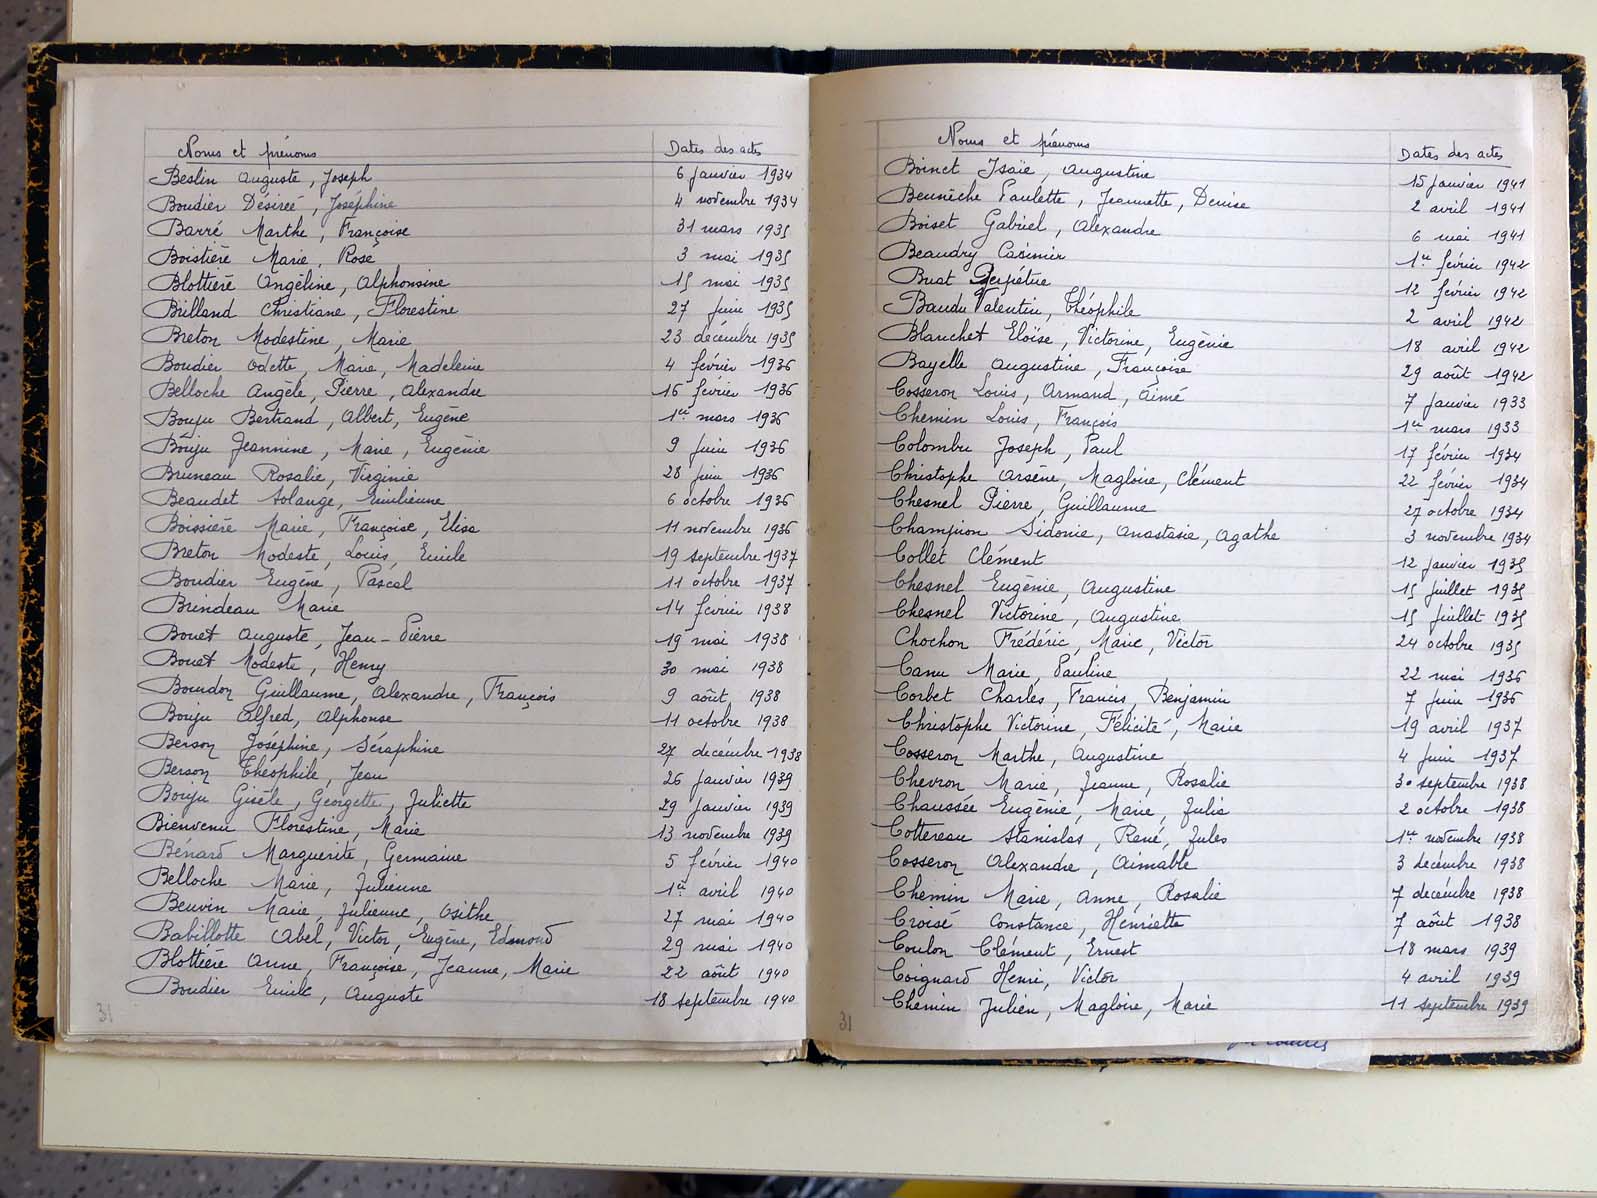 Noms et prénoms Dates des actes
Beslin Auguste, Joseph 6 janvier 1934
Boudier Désirée, Joséphine 4 novembre 1934
Barré Marthe, Françoise 31 mars 1935
Boistière Marie, Rose 3 mai 1935
Blottière Angèline, Alphonsine 15 mai 1935
Brilland Christiane, Florestine 27 juin 1935
Breton Modestine, Marie 23 décembre 1935
Boudier Odette, Marie, Madeleine 4 février 1936
Belloche Angèle, Pierre, Alexandre 16 février 1936
Bouju Bertrand, Albert, Eugène 1er mars 1936
Bouju Jeannine, Marie, Eugénie 9 juin 1936
Bruneau Rosalie, Virginie 28 juin 1936
Beaudet Solange, Emilienne 6 octobre 1936
Boissière Marie, Françoise, Elisa 11 novembre 1936
Breton Modeste, Louis, Emile 19 septembre 1937
Boudier Eugène, Pascal 11 octobre 1937
Brindeau Marie 14 février 1938
Bouet Auguste, Jean-Pierre 19 mai 1938
Bouet Modeste, Henry 30 mai 1938
Bourdon Guillaume, Alexandre, François 9 août 1938
Bouju Alfred, Alphonse 11 octobre 1938
Berson Joséphine, Séraphine 27 décembre 1938
Berson Théophile, Jean 26 janvier 1939
Bouju Gisèle, Georgette, Juliette 29 janvier 1939
Bienvenu Florestine, Marie 13 novembre 1939
Bénard Marguerite, Germaine 5 février 1940
Belloche Marie, Julienne 1er avril 1940
Beuvin Marie, Julienne, Osithe 27 mai 1940
Babillotte Abel, Victor, Eugène, Edmond 29 mai 1940
Blottière Anne, Françoise, Jeanne, Marie 22 août 1940
Boudier Emile, Auguste 18 septembre 1940
31
Noms et prénoms Dates des actes
Boinet Isaïe, Augustine 15 janvier 1941
Beunèche Paulette, Jeannette, Denise 2 avril 1941
Boiset Gabriel, Alexandre 6 mai 1941
Beaudry Casimir 1er février 1942
Buat Perpétue 12 février 1942
Baudu Valentin, Théophile 2 avril 1942
Blanchet Eloïse, Victorine, Eugènie 18 avril 1942
Bayelle Augustine, Françoise 29 août 1942
Cosseron Louis, Armand, Aimé 7 janvier 1933
Chemin Louis, François 1er mars 1933
Colombu Joseph, Paul 17 février 1934
Christophe Arsène, Magloire, Clément 22 février 1934
Chesnel Pierre, Guillaume 27 octobre 1934
Champion Sidonie, Anastasie, Agathe 3 novembre 1934
Collet Clément 12 janvier 1935
Chesnel Eugènie, Augustine 15 juillet 1935
Chesnel Victorine, Augustine 15 juillet 1935
Chochon Frédéric, Marie, Victor 24 octobre 1935
Canu Marie, Pauline 22 mai 1936
Corbet Charles, Francis, Benjamin 7 juin 1936
Christophe Victorine, Félicité, Marie 19 avril 1937
Cosseron Marthe, Augustine 4 juin 1937
Chevron Marie, Jeanne, Rosalie 30 septembre 1938
Chaussée Eugènie, Marie, Julia 2 octobre 1938
Cottereau Stanislas, René, Jules 1er novembre 1938
Cosseron Alexandre, Aimable 3 décembre 1938
Chemin Marie, Anne, Rosalie 7 décembre 1938
Croisé Constance, Henriette 7 août 1938
Coulon Clément, Ernest 18 mars 1939
Coignard Henri, Victor 4 avril 1939
Chemin Julien, Magloire, Marie 11 septembre 1939
31